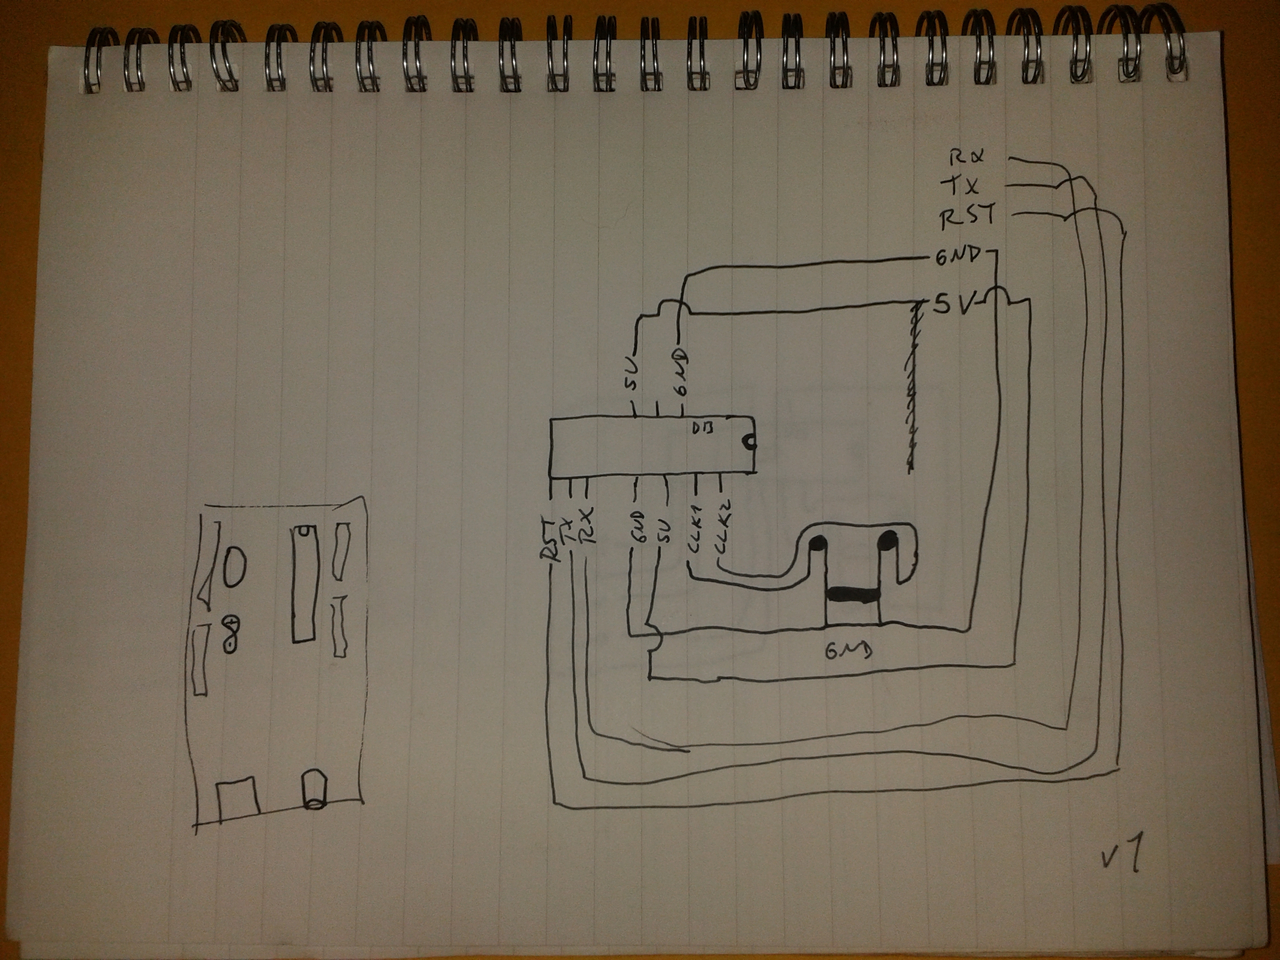 RX
TX
RST
GND
5V
5V
GND
RST
TX
RX
GND
5V
CLK1
CLK2
GND
v1